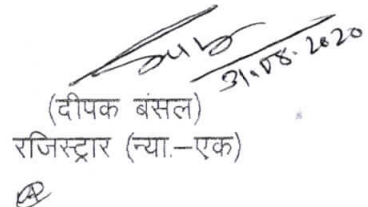 31.08.2020
(दीपक बंसल)
रजिस्ट्रार (न्या.–एक)